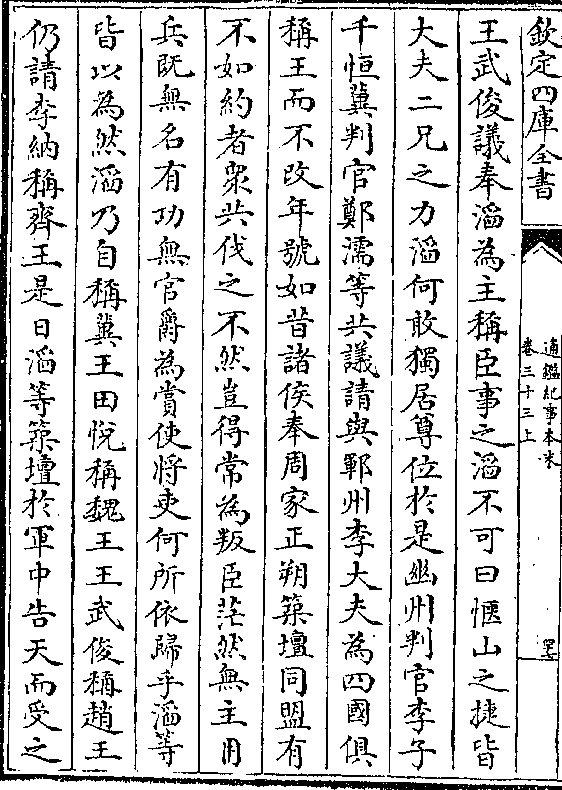 欽定四庫全書
通鑑紀事本末
卷三十三上
王武俊議奉滔為主稱臣事之滔不可曰愜山之捷皆
大夫二兄之力滔何敢獨居尊位於是幽州判官李子
千恒冀判官鄭濡等共議請與鄆州李大夫為四國俱
稱王而不改年號如昔諸侯奉周家正朔築壇同盟有
不如約者衆共伐之不然豈得常為叛臣茫然無主用
兵既無名有功無官爵為賞使將吏何所依歸乎滔等
皆以為然滔乃自稱冀王田悅稱魏王王武俊稱趙王
仍請李納稱齊王是日滔等築壇於軍中告天而受之